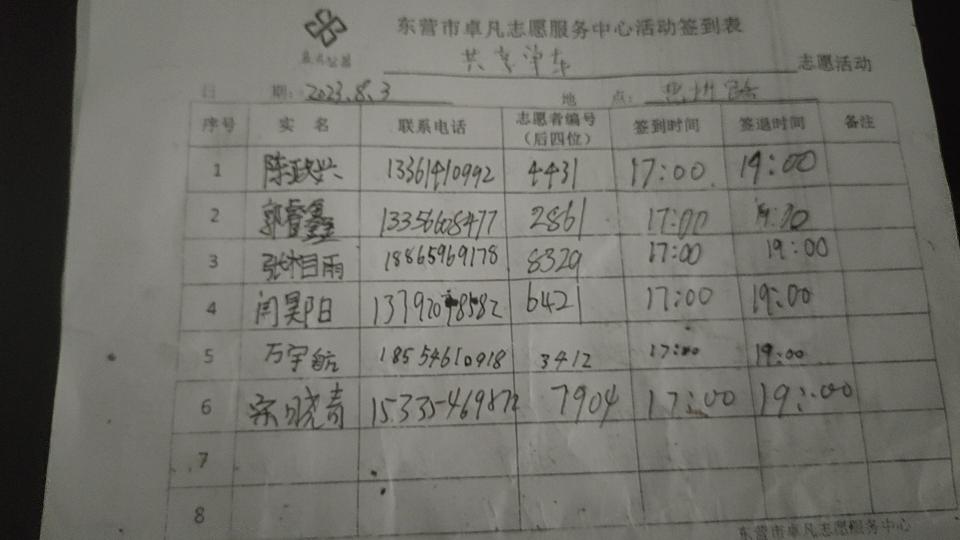 东营市卓凡志愿服务中心活动签到表
共享单车 志愿活动
日 期：2023.8.3 地 点：
序号 实 名 联系电话 志愿者编号（后四位） 签到时间 签退时间 备注
1 陈政兴 13361410992 4431 17:00 19:00
2 郭睿鑫 13356628477 2861 17:00 19:00
3 张相雨 18865969178 8329 17:00 19:00
4 闫昊阳 6421 17:00 19:00
5 万宇航 18554610918 3412 17:00 19:00
6 宗晓青 15335469872 7904 17:00 19:00
7
8
东营市卓凡志愿服务中心